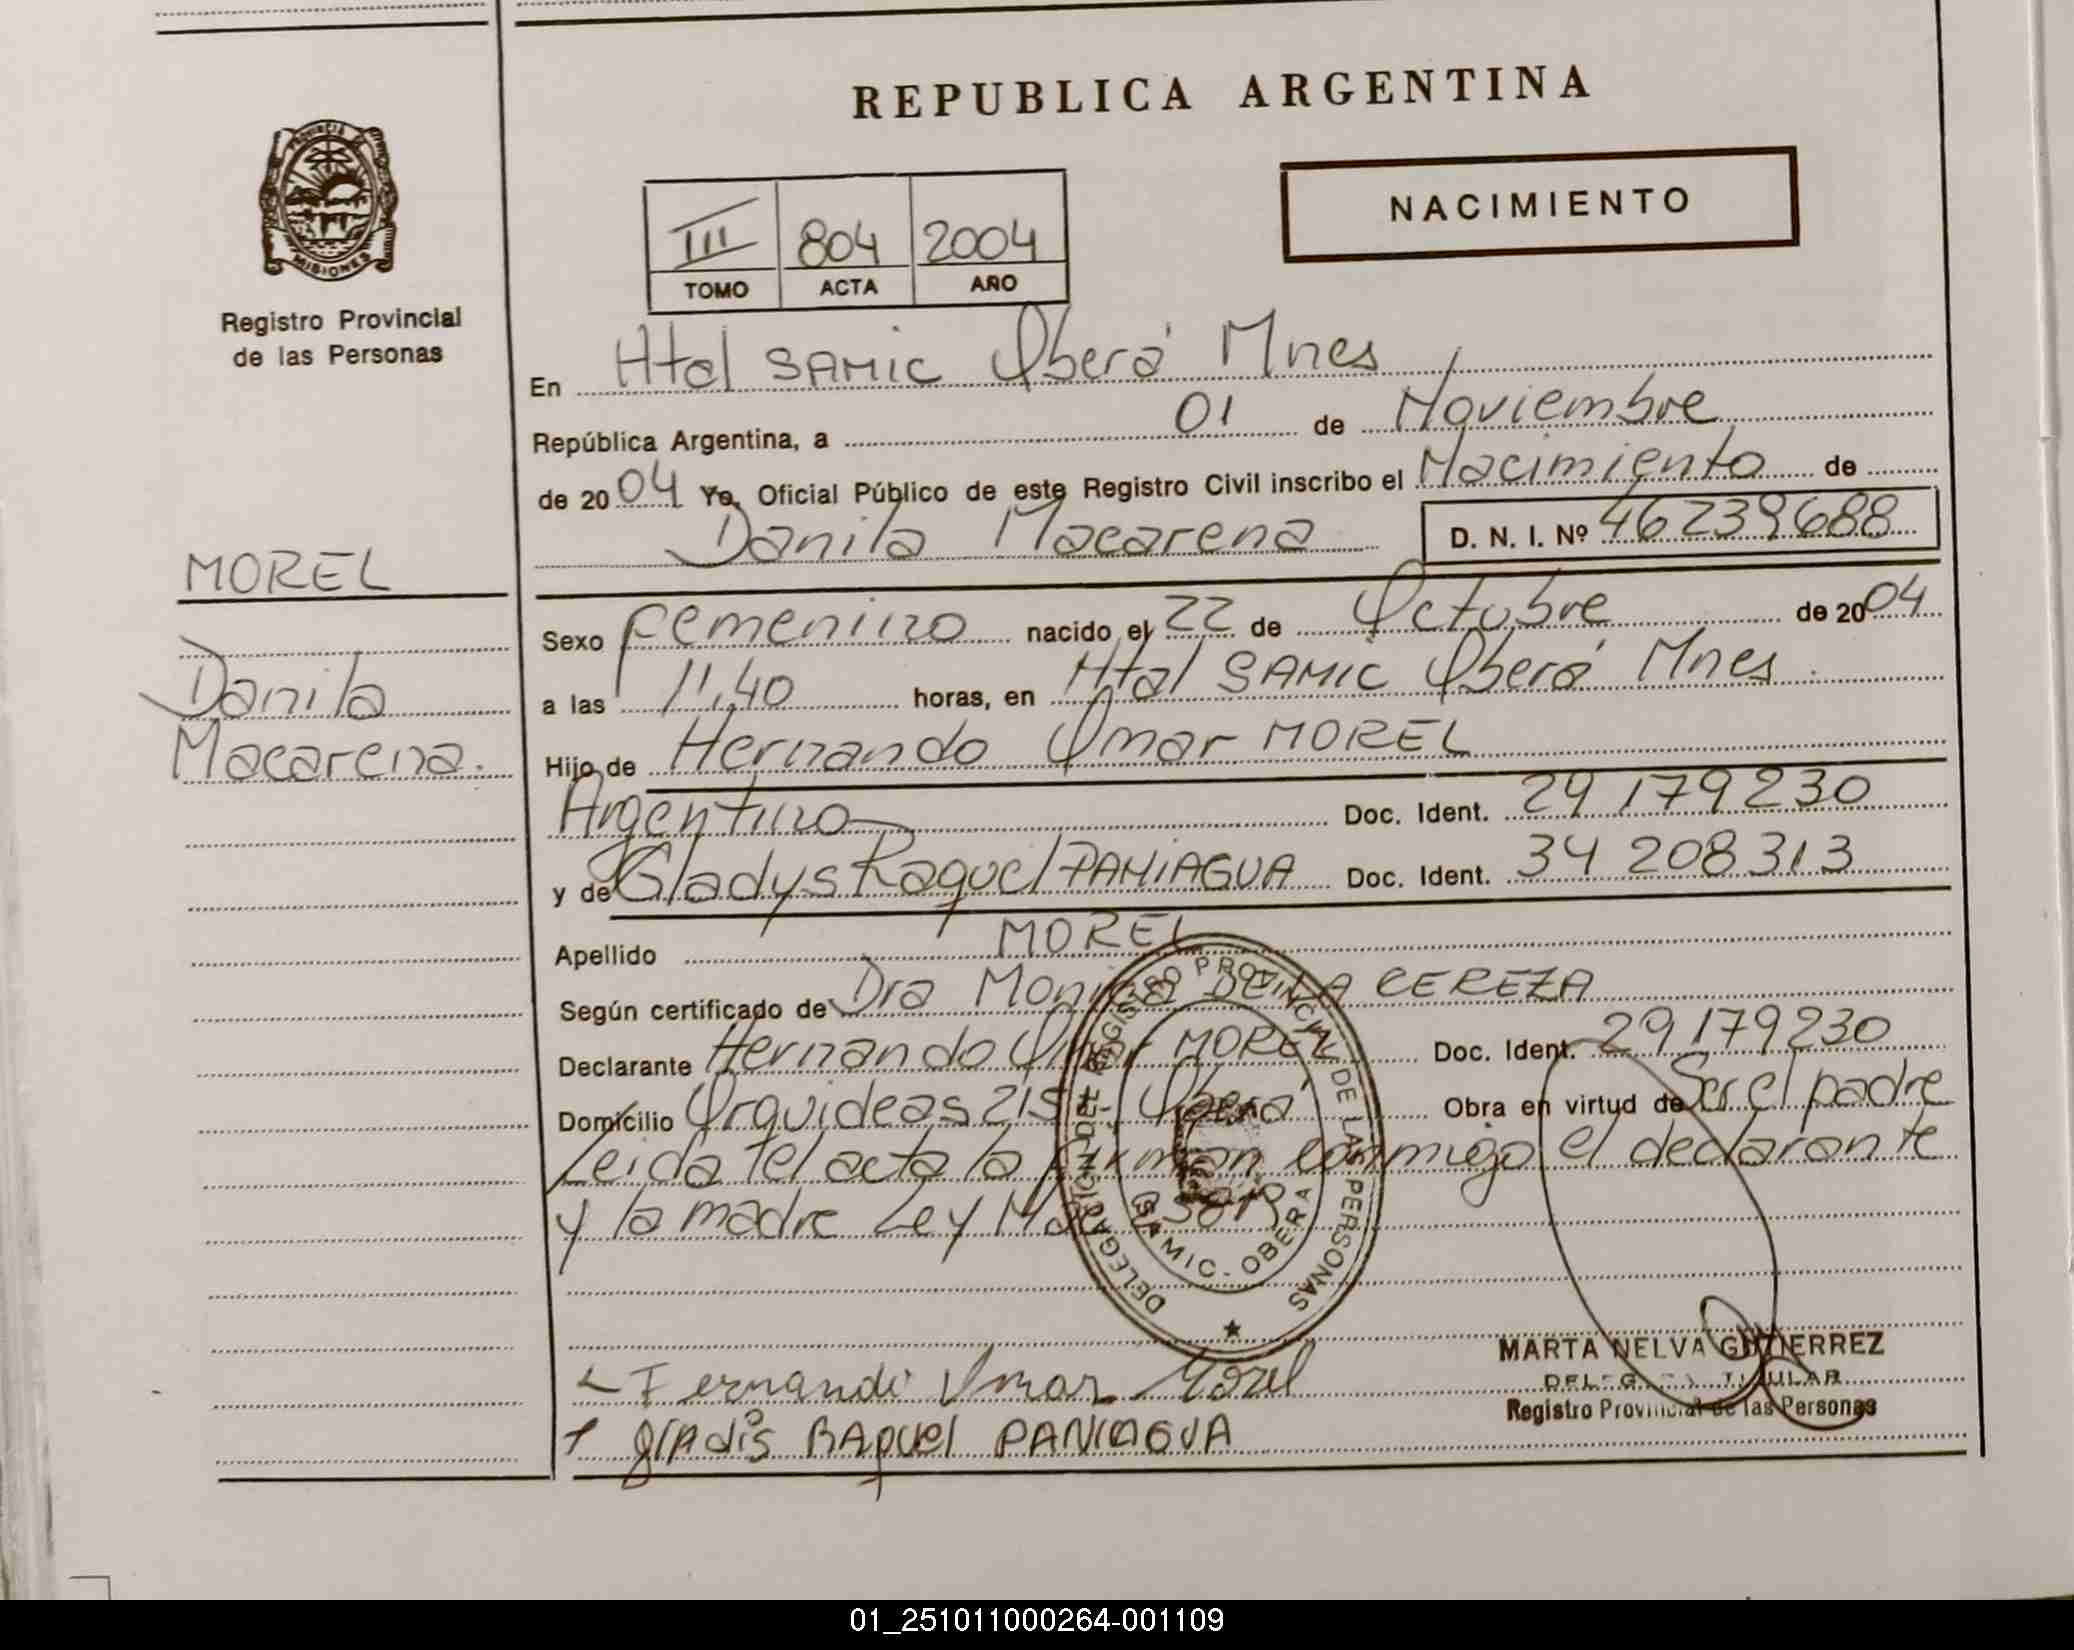 REPUBLICA ARGENTINA
PROVINCIA DE MISIONES
Registro Provincial
de las Personas
NACIMIENTO
III 804 2004
TOMO ACTA AÑO
En Htal SAMIC Oberá Mnes
República Argentina, a 01 de Noviembre
de 2004 Yo, Oficial Público de este Registro Civil inscribo el Nacimiento de
Danila Macarena D. N. I. Nº 46239688
MOREL
Danila
Macarena.
Sexo Femenino nacido el 22 de Octubre de 2004
a las 11,40 horas, en Htal SAMIC Oberá Mnes
Hijo de Hernando Omar MOREL
Argentino Doc. Ident. 29 179230
y de Gladys Raquel PANIAGUA Doc. Ident. 34 208313
Apellido MOREL
Según certificado de Dra Monica DE LA CEREZA
Declarante Hernando Omar MOREL Doc. Ident. 29 179230
Domicilio Orquideas 215 Oberá Obra en virtud de Ser el padre
Leida el acta la firman conmigo el declarante
y la madre Ley
REGISTRO PROVINCIAL DE LAS PERSONAS
DELEGACION
SAMIC - OBERA
Fernando Omar Morel
gladis RAquel PANIAGUA
MARTA NELVA GUTIERREZ
DELEGADA TITULAR
Registro Provincial de las Personas
01_251011000264-001109